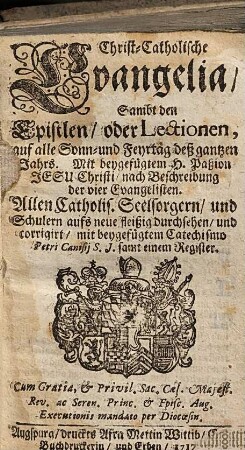 Christ-Catholische
Evangelia /
Sambt den
Epistlen / oder Lectionen,
auf alle Sonn- und Feyrtäg deß gantzen
Jahrs. Mit beygefügtem H. Passion
JESU Christi / nach Beschreibung
der vier Evangelisten.
Allen Catholis. Seelsorgern / und
Schulern aufs neue fleißig durchsehen / und
corrigirt / mit beygefügtem Catechismo
Petri Canisij S. J. samt einem Register.
Cum Gratia, & Privil. Sac. Cæs. Majest.
Rev. ac Seren. Princ. & Episc. Aug.
Executionis mandato per Diœcesin.
Augspurg / druckts Afra Mettin Wittib /
Buchdruckerin / und Erben /